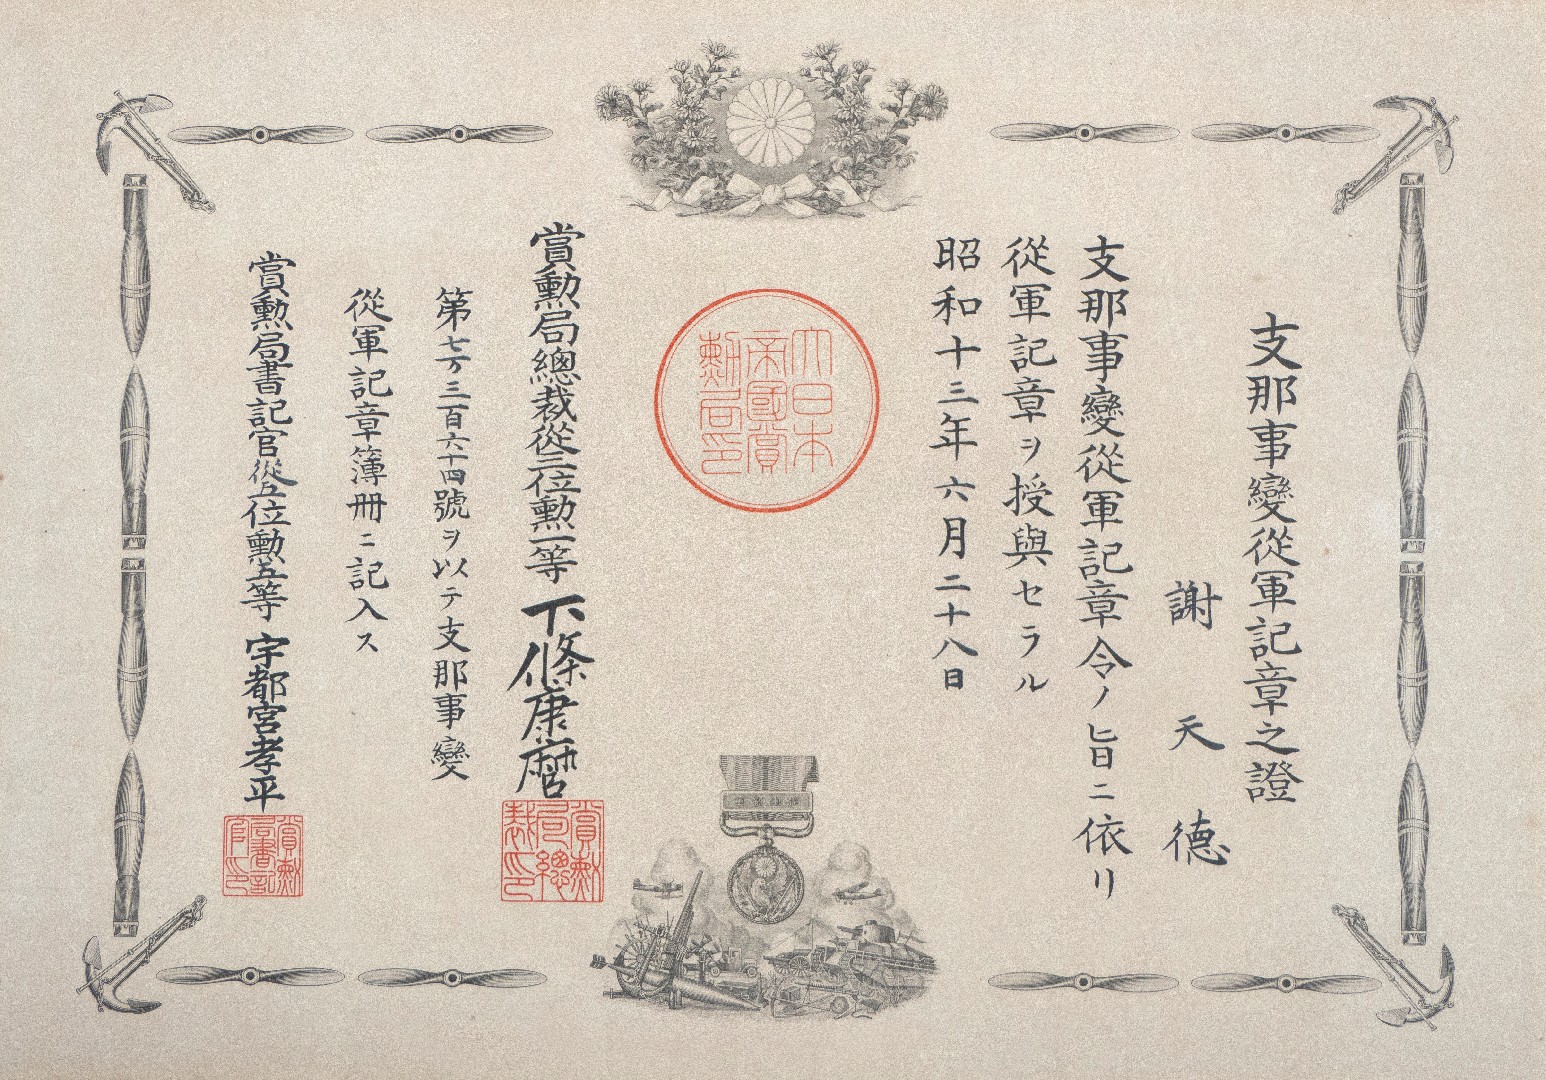 支那事變從軍記章之證
謝天德
支那事變從軍記章令ノ旨ニ依リ
從軍記章ヲ授與セラル
昭和十三年六月二十八日
大日本
帝國賞
勳局印
賞勳局總裁從三位勳一等下條康麿
賞勳
局總
裁印
第七万三百六十四號ヲ以テ支那事變
從軍記章簿冊ニ記入ス
賞勳局書記官從五位勳五等宇都宮孝平
賞勳
局書記
官印